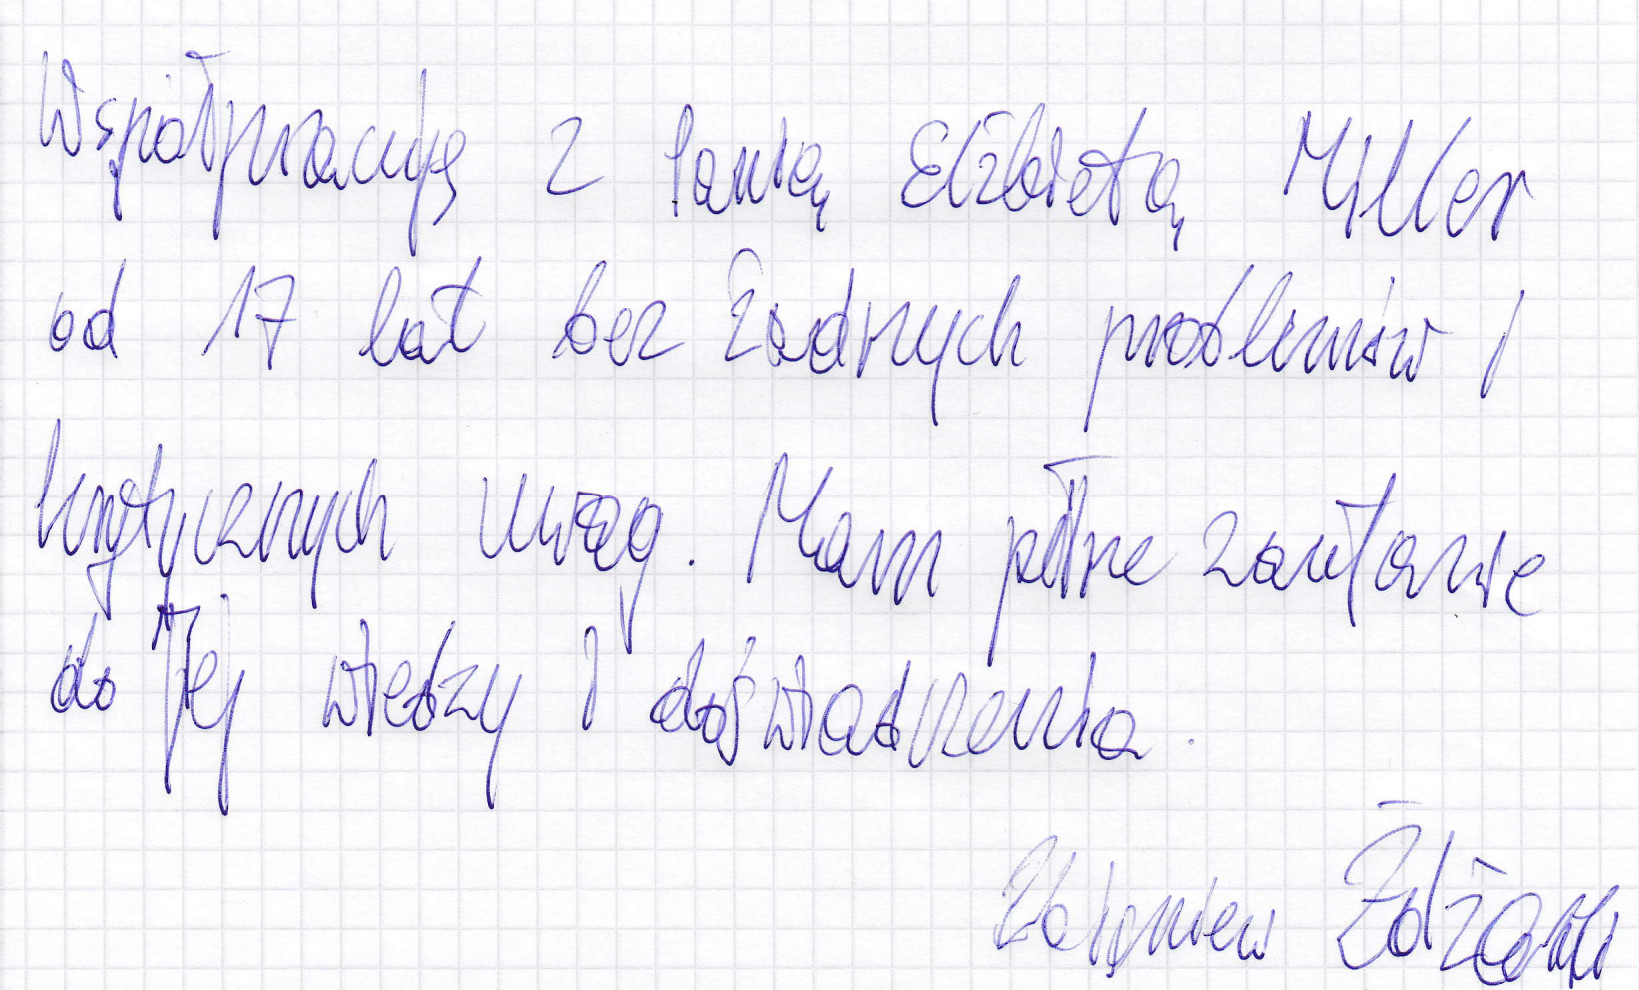 Współpracuję z Panią Elżbietą Miller
od 17 lat bez żadnych problemów i
krytycznych uwag. Mam pełne zaufanie
do Jej wiedzy i doświadczenia.
Zbigniew